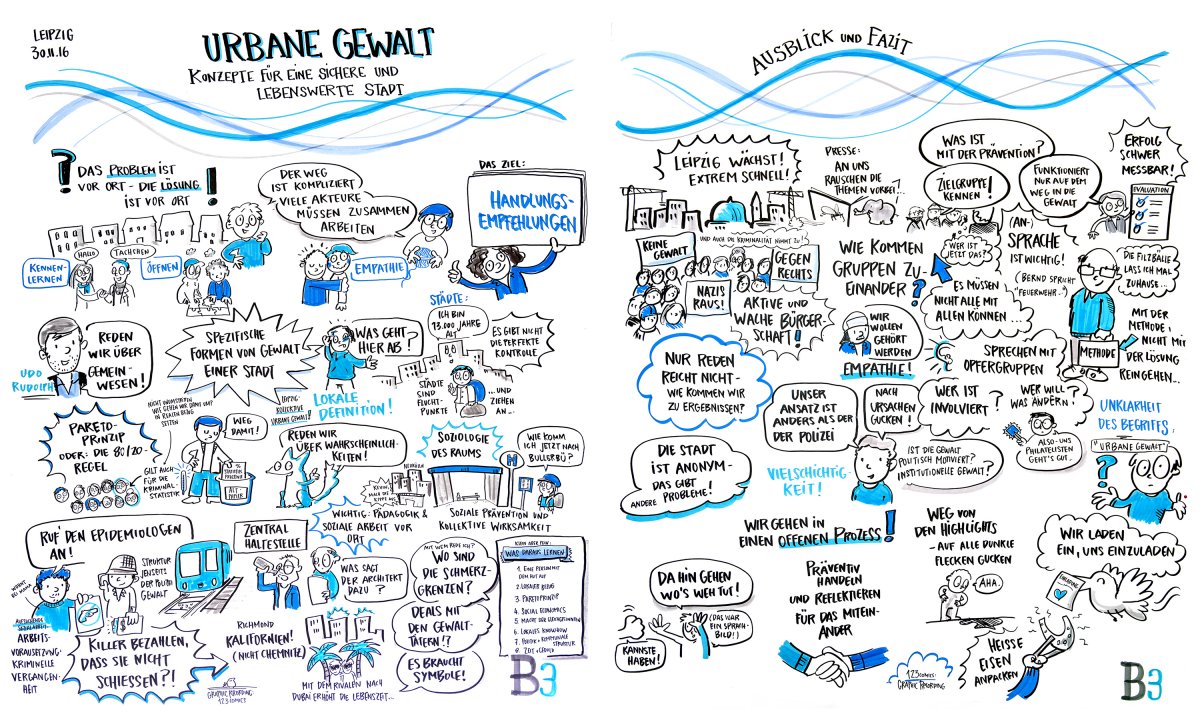 LEIPZIG
30.11.16
URBANE GEWALT
KONZEPTE FÜR EINE SICHERE UND
LEBENSWERTE STADT
? DAS PROBLEM IST
VOR ORT - DIE LÖSUNG
IST VOR ORT !
HALLO
TACHCHEN
KENNEN-
LERNEN
ÖFFNEN
DER WEG
IST KOMPLIZIERT
VIELE AKTEURE
MÜSSEN ZUSAMMEN
ARBEITEN
EMPATHIE
DAS ZIEL:
HANDLUNGS-
EMPFEHLUNGEN
UDO
RUDOLPH
REDEN
WIR ÜBER
GEMEIN-
WESEN!
SPEZIFISCHE
FORMEN VON GEWALT
EINER STADT
WAS GEHT
HIER AB?
LOKALE
DEFINITION!
STÄDTE:
ICH BIN
13.000 JAHRE
ALT
ES GIBT NICHT
DIE PERFEKTE
KONTROLLE
STÄDTE
SIND
FLUCHT-
PUNKTE
... UND
ZIEHEN
AN...
PARETO-
PRINZIP
ODER: DIE 80/20-
REGEL
GILT AUCH
FÜR DIE
KRIMINAL-
STATISTIK
WEG
DAMIT!
ALT-
PAPIER
LEIPZIG:
KOLLEKTIVE
URBANE GEWALT!
REDEN WIR
ÜBER WAHRSCHEINLICH-
KEITEN!
SOZIOLOGIE
DES RAUMS
WIE KOMM
ICH JETZT NACH
BULLERBÜ?
H
SOZIALE PRÄVENTION UND
KOLLEKTIVE WIRKSAMKEIT
WICHTIG: PÄDAGOGIK &
SOZIALE ARBEIT VOR
ORT
RUF DEN EPIDEMIOLOGEN
AN!
STRUKTUR
JENSEITS
DER
GEWALT
ZENTRAL
HALTESTELLE
WAS SAGT
DER ARCHITEKT
DAZU?
MIT WEM REDE ICH?
WO SIND
DIE SCHMERZ-
GRENZEN?
DEALS MIT
DEN GEWALT-
TÄTERN!?
ES BRAUCHT
SYMBOLE!
WAS DARAUS LERNEN
3. PARETOPRINZIP
4. SOCIAL ECONOMICS
ARBEITS-
VORAUSSETZUNG:
KRIMINELLE
VERGANGEN-
HEIT
KILLER BEZAHLEN,
DASS SIE NICHT
SCHIESSEN?!
RICHMOND
KALIFORNIEN!
(NICHT CHEMNITZ)
MIT DEM RIVALEN NACH
DUBAI ERHÖHT DIE LEBENSZEIT...
GRAPHIC RECORDING
123COMICS
B3
AUSBLICK UND FAZIT
LEIPZIG WÄCHST!
EXTREM SCHNELL!
PRESSE:
AN UNS
RAUSCHEN DIE
THEMEN VORBEI...
WAS IST
MIT DER PRÄVENTION?
ZIELGRUPPE
KENNEN!
FUNKTIONIERT
NUR AUF DEM
WEG IN DIE
GEWALT
ERFOLG
SCHWER
MESSBAR!
EVALUATION
UND AUCH DIE KRIMINALITÄT NIMMT ZU
KEINE
GEWALT
GEGEN
RECHTS
NAZIS
RAUS!
AKTIVE UND
WACHE BÜRGER-
SCHAFT!
WIE KOMMEN
GRUPPEN ZU-
EINANDER ?
WER IST
JETZT DAS?
(AN-)
SPRACHE
IST WICHTIG!
(BERND SPRICHT
"FEUERWEHR"..)
DIE FILZBÄLLE
LASS ICH MAL
ZUHAUSE...
ES MÜSSEN
NICHT ALLE MIT
ALLEN KÖNNEN...
METHODE
MIT DER
METHODE,
NICHT MIT
DER LÖSUNG
REINGEHEN...
NUR REDEN
REICHT NICHT-
WIE KOMMEN WIR
ZU ERGEBNISSEN?
WIR
WOLLEN
GEHÖRT
WERDEN
EMPATHIE!
SPRECHEN MIT
OPFERGRUPPEN
UNSER
ANSATZ IST
ANDERS ALS DER
DER POLIZEI
NACH
URSACHEN
GUCKEN!
WER IST
INVOLVIERT?
WER WILL
WAS ÄNDERN?
ALSO - UNS
PHILATELISTEN
GEHT'S GUT...
UNKLARHEIT
DES BEGRIFFS:
"URBANE GEWALT"
?
DIE STADT
IST ANONYM-
DAS GIBT
PROBLEME!
ANDERE
VIELSCHICHTIG-
KEIT!
IST DIE GEWALT
POLITISCH MOTIVIERT?
INSTITUTIONELLE GEWALT?
WIR GEHEN IN
EINEN OFFENEN PROZESS!
WEG VON
DEN HIGHLIGHTS
- AUF ALLE DUNKLE
FLECKEN GUCKEN
AHA.
WIR LADEN
EIN, UNS EINZULADEN
EINLADUNG
DA HIN GEHEN
WO'S WEH TUT!
(DAS WAR
EIN SPRACH-
BILD!)
KANNSTE
HABEN!
PRÄVENTIV
HANDELN
UND REFLEKTIEREN
FÜR DAS MITEIN-
ANDER
HEISSE
EISEN
ANPACKEN
123COMICS:
GRAPHIC RECORDING
B3